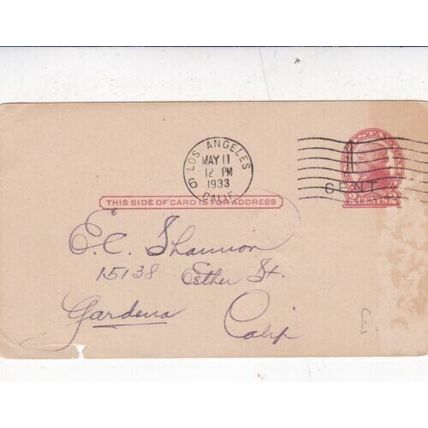 LOS ANGELES
MAY 11
12 PM
1933
CALIF.
1
CENT
THIS SIDE OF CARD IS FOR ADDRESS
E.C. Shannon
15138 Esther St.
Gardena
Calif